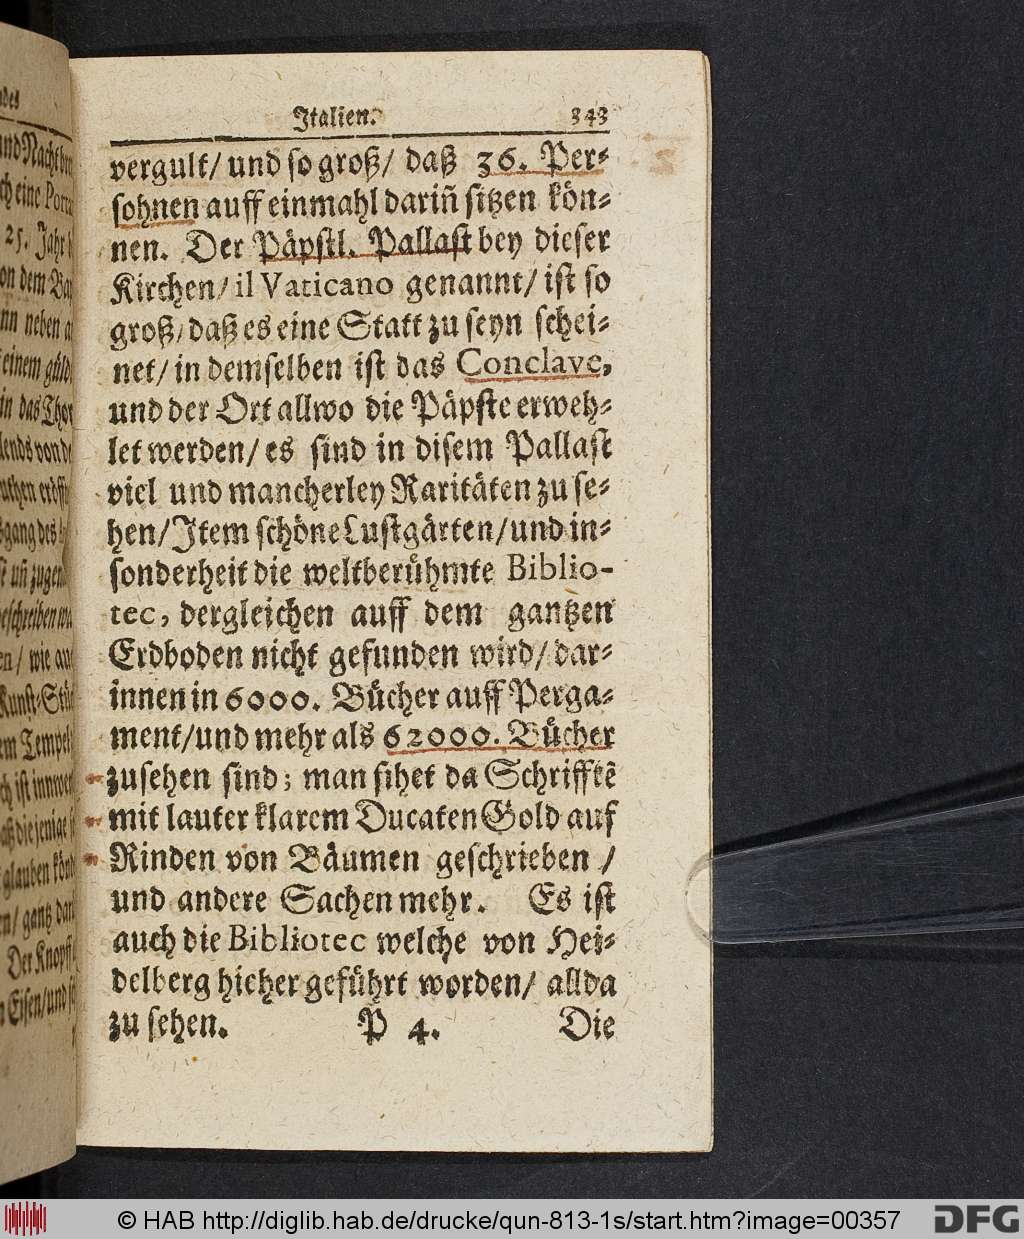 Italien. 343
vergult/ und so groß/ daß 36. Per-
sohnen auff einmahl dariñ sitzen kön-
nen. Der Päpstl. Pallast bey dieser
Kirchen/ il Vaticano genannt/ ist so
groß/ daß es eine Statt zu seyn schei-
net/ in demselben ist das Conclave,
und der Ort allwo die Päpste erweh-
let werden/ es sind in disem Pallast
viel und mancherley Raritäten zu se-
hen/ Item schöne Lustgärten/ und in-
sonderheit die weltberühmte Biblio-
tec, dergleichen auff dem gantzen
Erdboden nicht gefunden wird/ dar-
innen in 6000. Bücher auff Perga-
ment/ und mehr als 62000. Bücher
zusehen sind; man sihet da Schrifftẽ
mit lauter klarem Ducaten Gold auf
Rinden von Bäumen geschrieben /
und andere Sachen mehr. Es ist
auch die Bibliotec welche von Hei-
delberg hieher geführt worden/ allda
zu sehen. P 4. Die
© HAB http://diglib.hab.de/drucke/qun-813-1s/start.htm?image=00357 DFG